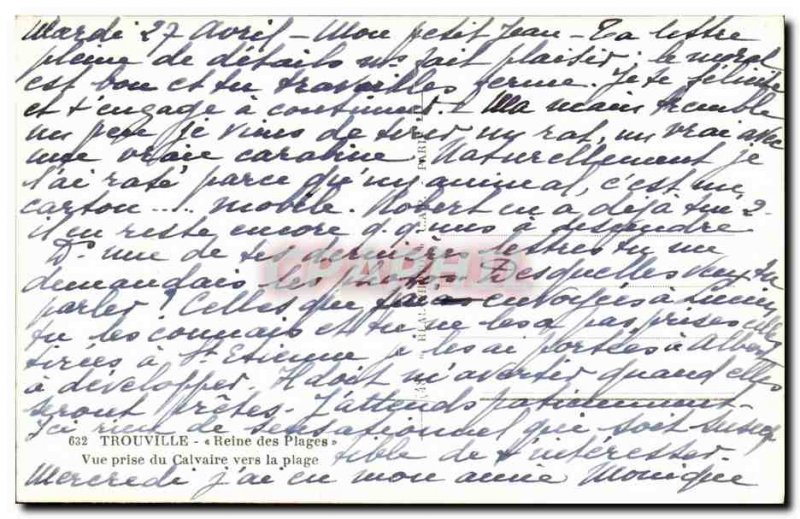 Mardi 27 Avril - Mon petit Jean - Ta lettre
pleine de détails me fait plaisir ; le moral
est bon et tu travailles ferme. Je te félicite
et t'engage à continuer. - Ma main tremble
un peu je viens de tirer un rat, un vrai avec
une vraie carabine. Naturellement je
l'ai raté parce qu'un animal, c'est un
carton .... mobile. Robert en a déjà tué 2-
il en reste encore q.q. uns à
Ds une de tes dernières lettres tu me
demandais les photos. Desquelles veux tu
parler ? Celles que envoyées à
tu les connais et tu ne les a pas prises
tirées à St Etienne je les ai portées à Albert
à développer. Il doit m'avertir quand elles
seront prêtes. J'attends patiemment.
Ici rien de sensationnel qui soit suscep
632 TROUVILLE - « Reine des Plages »
Vue prise du Calvaire vers la plage
tible de t'intéresser.
Mercredi j'ai eu mon amie Monique